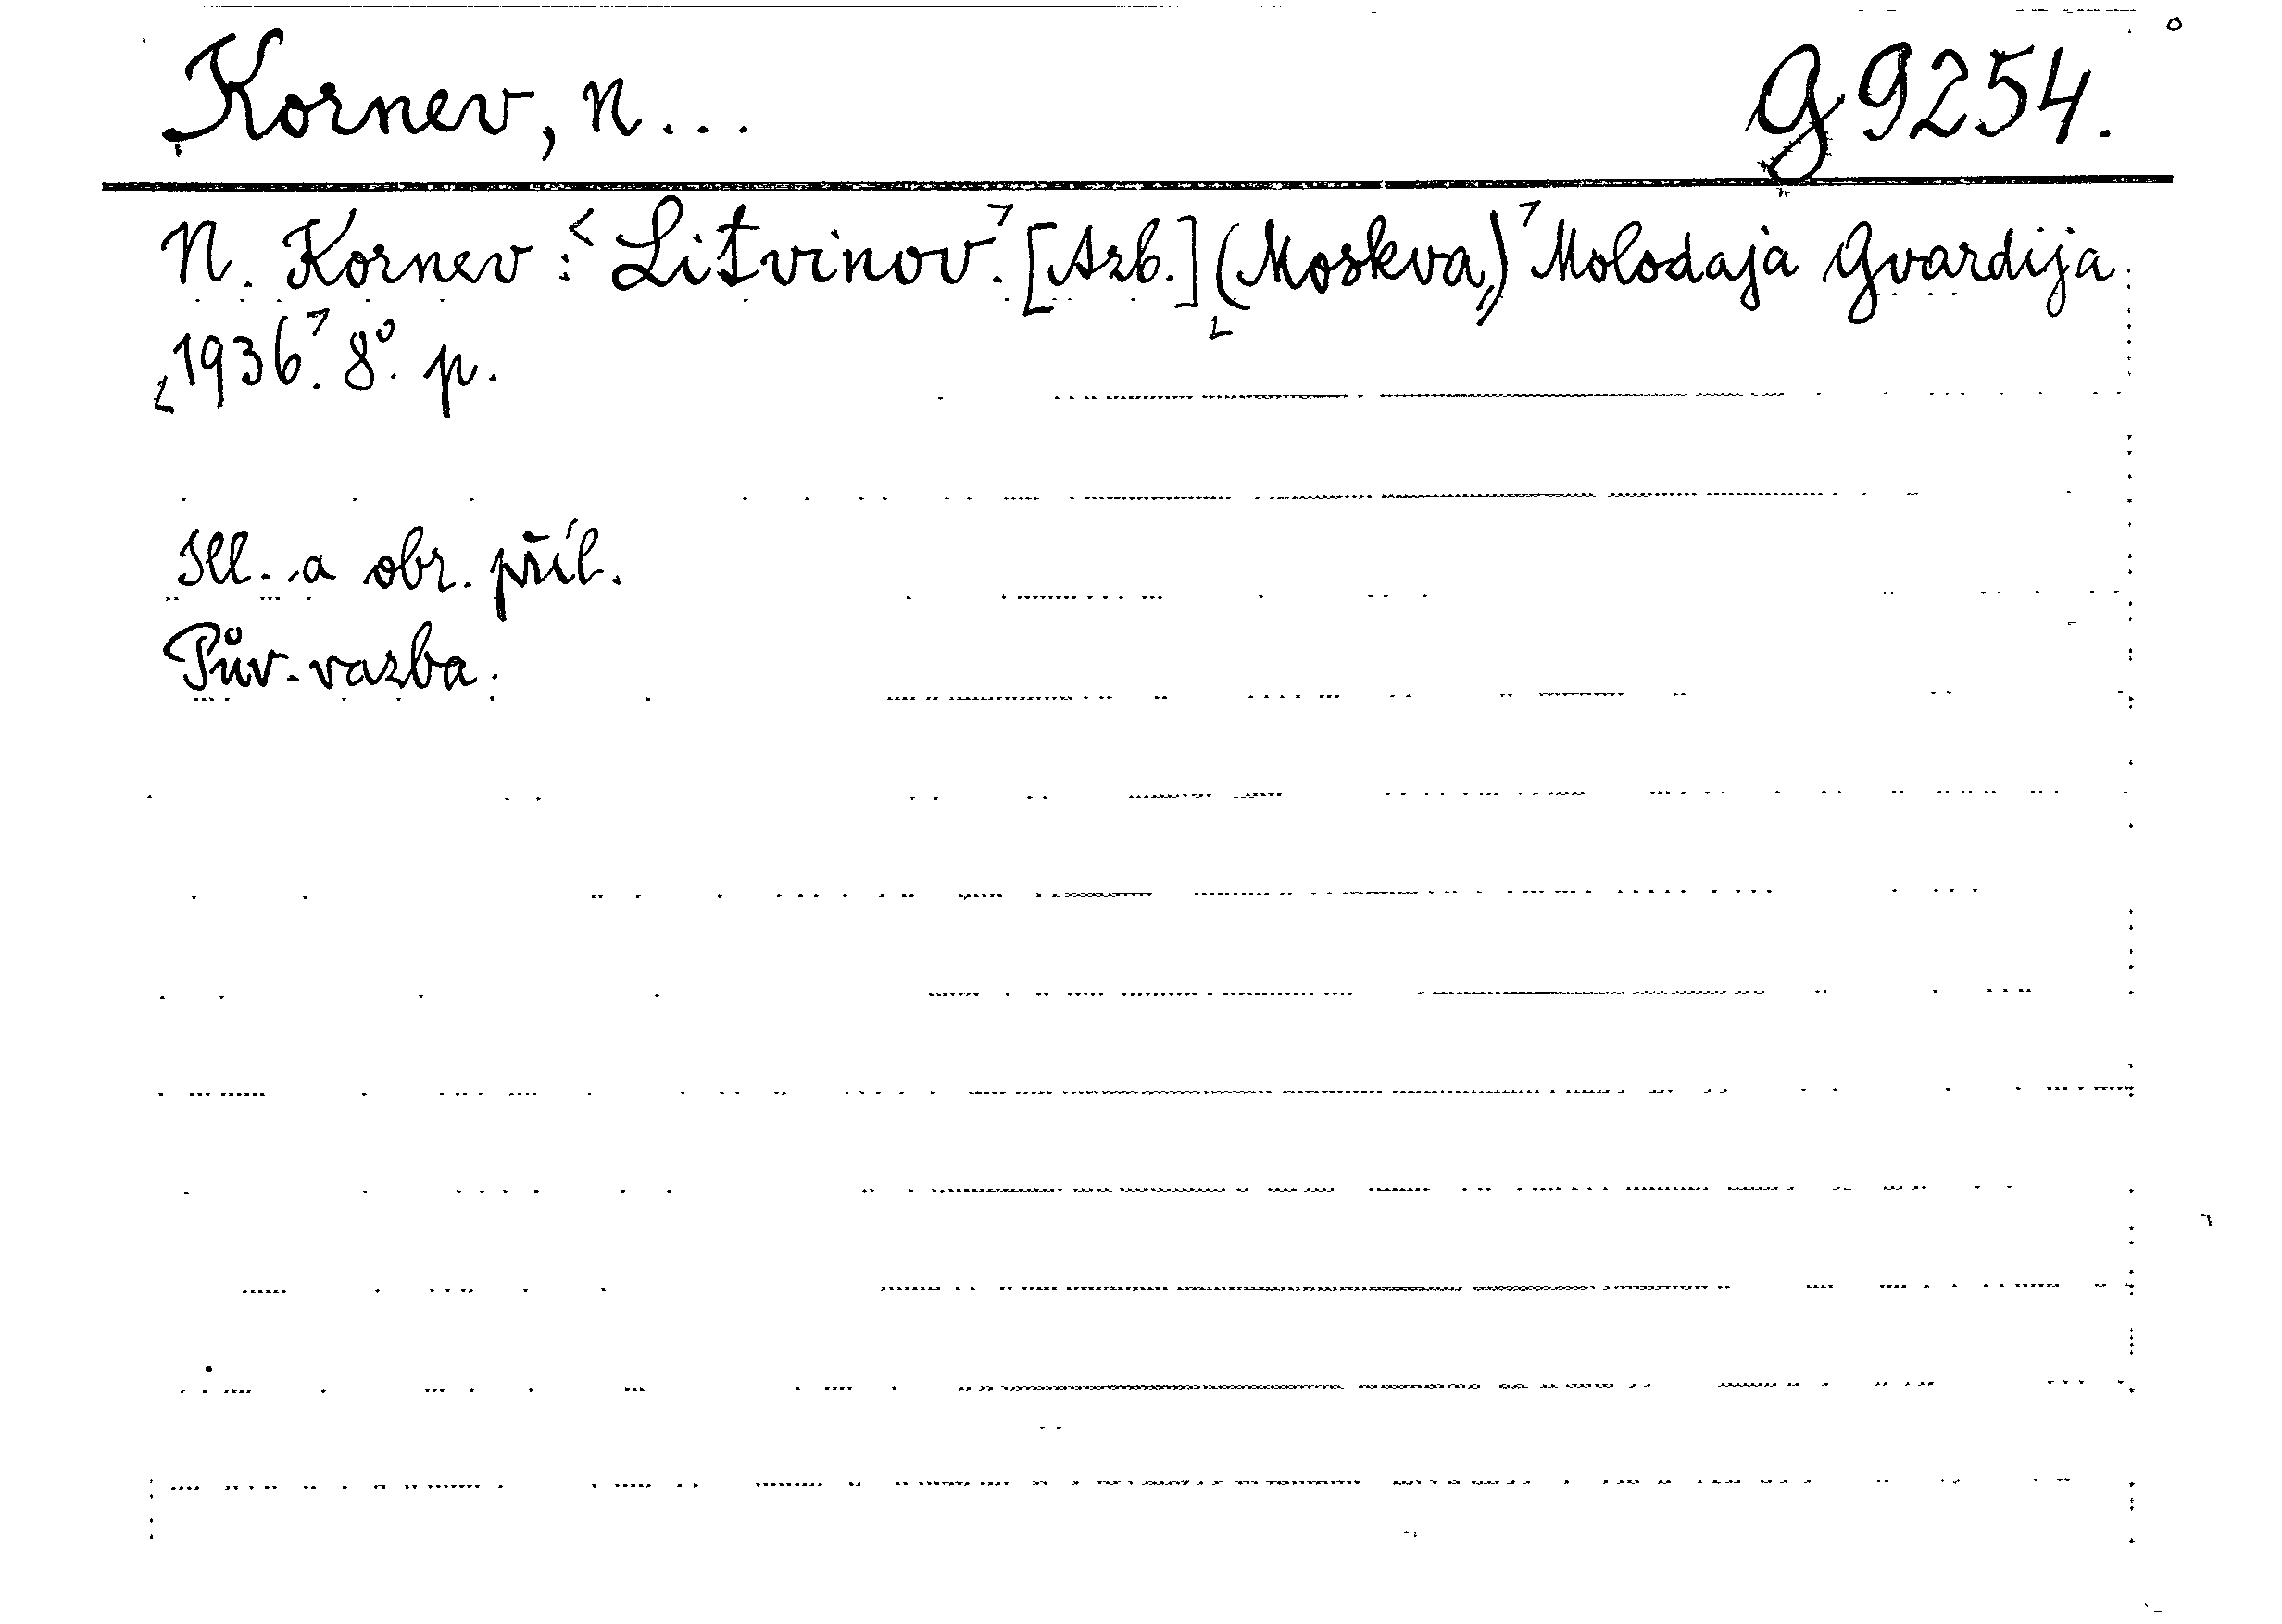 Kornev, N... G 9254.
N. Kornev: Litvinov. [Azb.] (Moskva,) Molodaja Gvardija
1936. 8°. p.
Ill. a obr. příl.
Pův. vazba.